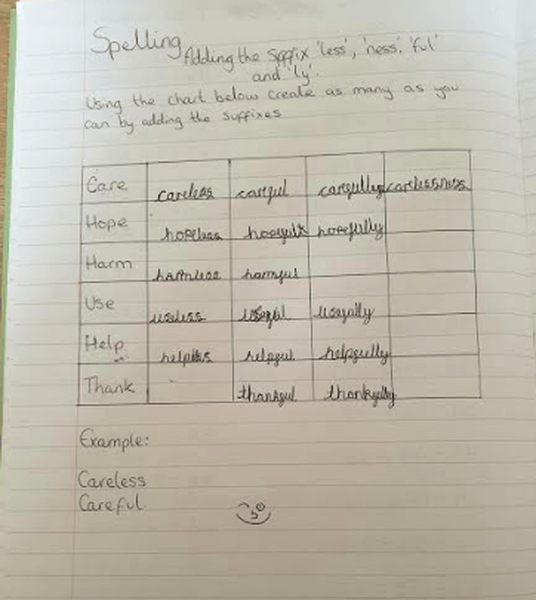 Spelling
Adding the Suffix 'less', 'ness', 'ful'
and 'ly'.
Using the chart below create as many as you
can by adding the suffixes
Care careless careful carefully carelessness
Hope hopeless hopeful hopefully
Harm harmless harmful
Use useless useful usefully
Help helpless helpful helpfully
Thank thankful thankfully
Example:
Careless
Careful